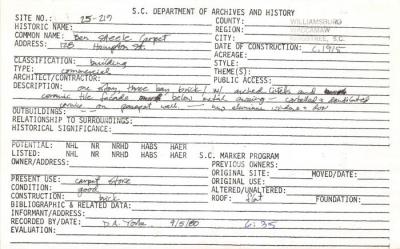 S.C. DEPARTMENT OF ARCHIVES AND HISTORY
SITE NO.: 25-217
COUNTY: WILLIAMSBURG
HISTORIC NAME:
REGION: WACCAMAW
COMMON NAME: Ben Steele Carpet
KINGSTREE, S.C.
ADDRESS: 128 Hampton St.
DATE OF CONSTRUCTION: C. 1915
ACREAGE:
CLASSIFICATION: building
STYLE:
TYPE: commercial
THEME(S):
ARCHITECT/CONTRACTOR:
PUBLIC ACCESS:
DESCRIPTION: one story, three bay brick w/ arched
ceramic tile facade below metal awning - corbelled & dentilated
cornice - on parapet wall - new aluminum windows & door
OUTBUILDINGS:
RELATIONSHIP TO SURROUNDINGS:
HISTORICAL SIGNIFICANCE:
POTENTIAL: NHL NR NRHD HABS HAER
LISTED: NHL NR NRHD HABS HAER
S.C. MARKER PROGRAM
OWNER/ADDRESS:
PREVIOUS OWNERS:
ORIGINAL SITE: MOVED/DATE:
PRESENT USE: carpet store
ORIGINAL USE:
CONDITION: good
ALTERED/UNALTERED:
CONSTRUCTION: brick
ROOF: flat FOUNDATION:
BIBLIOGRAPHIC & RELATED DATA:
INFORMANT/ADDRESS:
RECORDED BY/DATE: D.A. 9/5/80
6:35
EVALUATION: